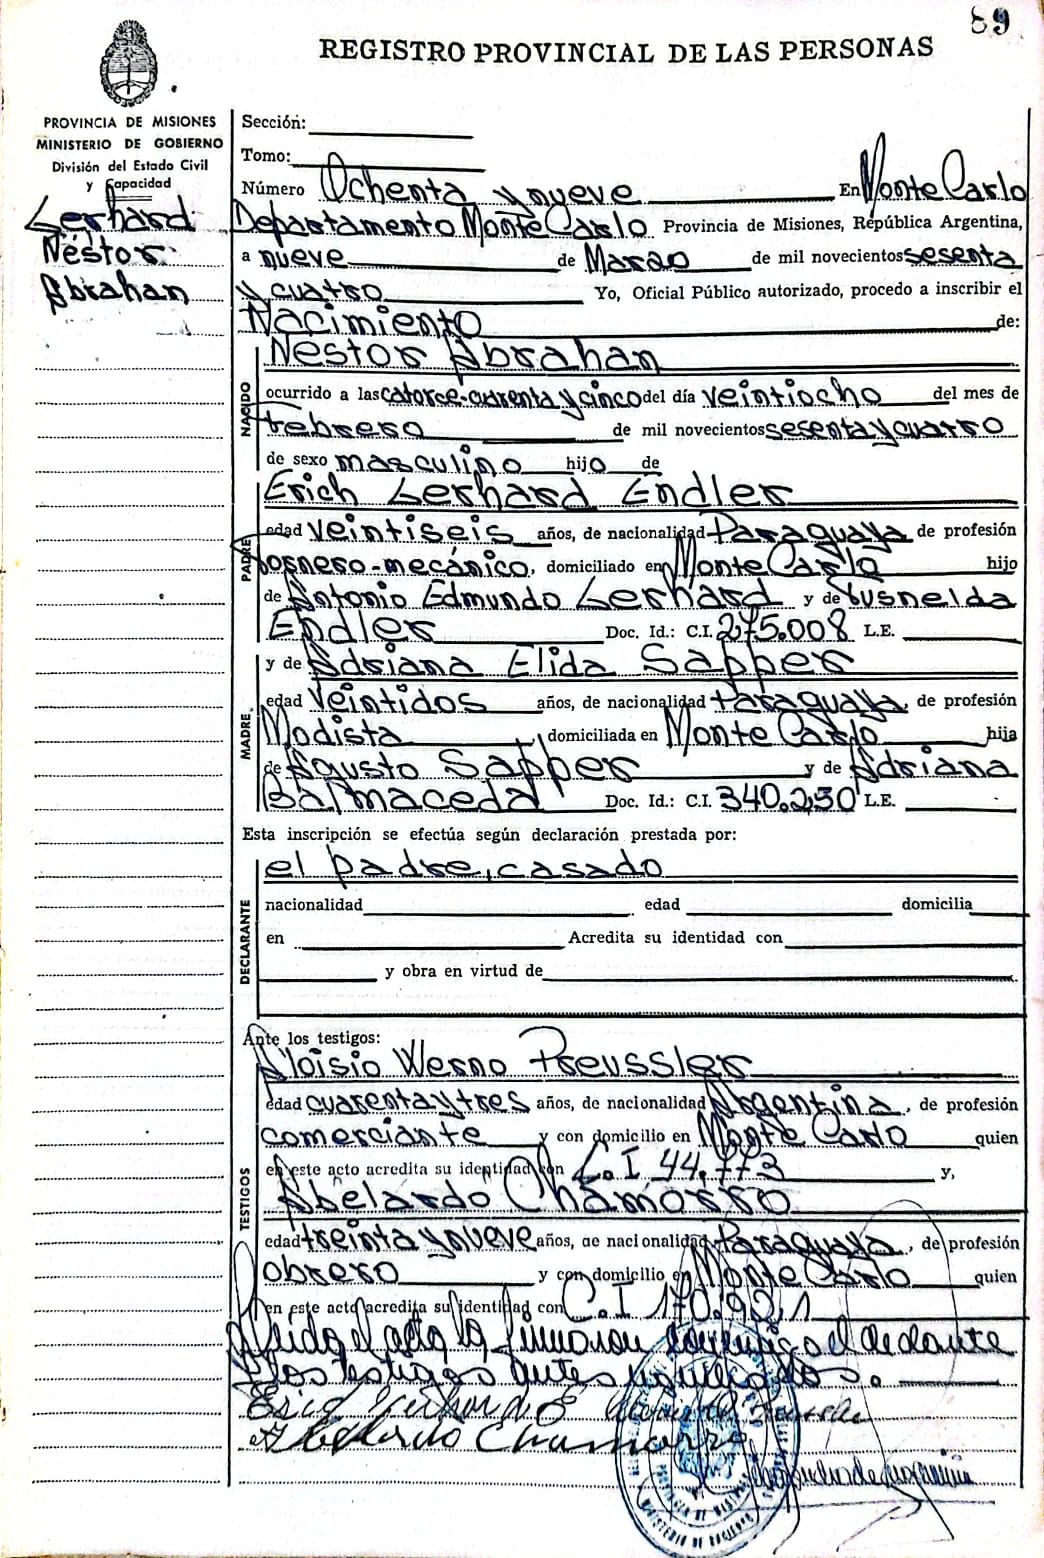 89
REGISTRO PROVINCIAL DE LAS PERSONAS
PROVINCIA DE MISIONES
MINISTERIO DE GOBIERNO
División del Estado Civil
y Capacidad
Gerhard
Néstor
Abrahan
Sección:
Tomo:
Número Ochenta y nueve En Monte Carlo
Departamento Monte Carlo Provincia de Misiones, República Argentina,
a nueve de Marzo de mil novecientos sesenta
y cuatro Yo, Oficial Público autorizado, procedo a inscribir el
Nacimiento de:
NACIDO
Néstor Abrahan
ocurrido a las catorce-cuarenta y cinco del día veintiocho del mes de
febrero de mil novecientos sesenta y cuatro
de sexo masculino hijo de
PADRE
Erich Gerhard Endler
edad veintiseis años, de nacionalidad Paraguaya de profesión
tornero-mecánico, domiciliado en Monte Carlo hijo
de Antonio Edmundo Gerhard y de Tusnelda
Endler Doc. Id.: C.I. 275.008 L.E.
MADRE
y de Adriana Elida Sapper
edad veintidos años, de nacionalidad Paraguaya, de profesión
Modista, domiciliada en Monte Carlo hija
de Fausto Sapper y de Adriana
Balmaceda Doc. Id.: C.I. 340.230 L.E.
Esta inscripción se efectúa según declaración prestada por:
DECLARANTE
el padre, casado
nacionalidad edad domicilia
en Acredita su identidad con
y obra en virtud de
Ante los testigos:
TESTIGOS
Aloisio Werno Preussler
edad cuarenta y tres años, de nacionalidad Argentina, de profesión
comerciante y con domicilio en Monte Carlo quien
en este acto acredita su identidad con C.I 44.773 y,
Abelardo Chamorro
edad treinta y nueve años, de nacionalidad Paraguaya, de profesión
obrero y con domicilio en Monte Carlo quien
en este acto acredita su identidad con C.I 170.921
Leida el acta la firmaron conmigo el declarante
y los testigos antes nombrados.
Abelardo Chamorro
MINISTERIO DE GOBIERNO